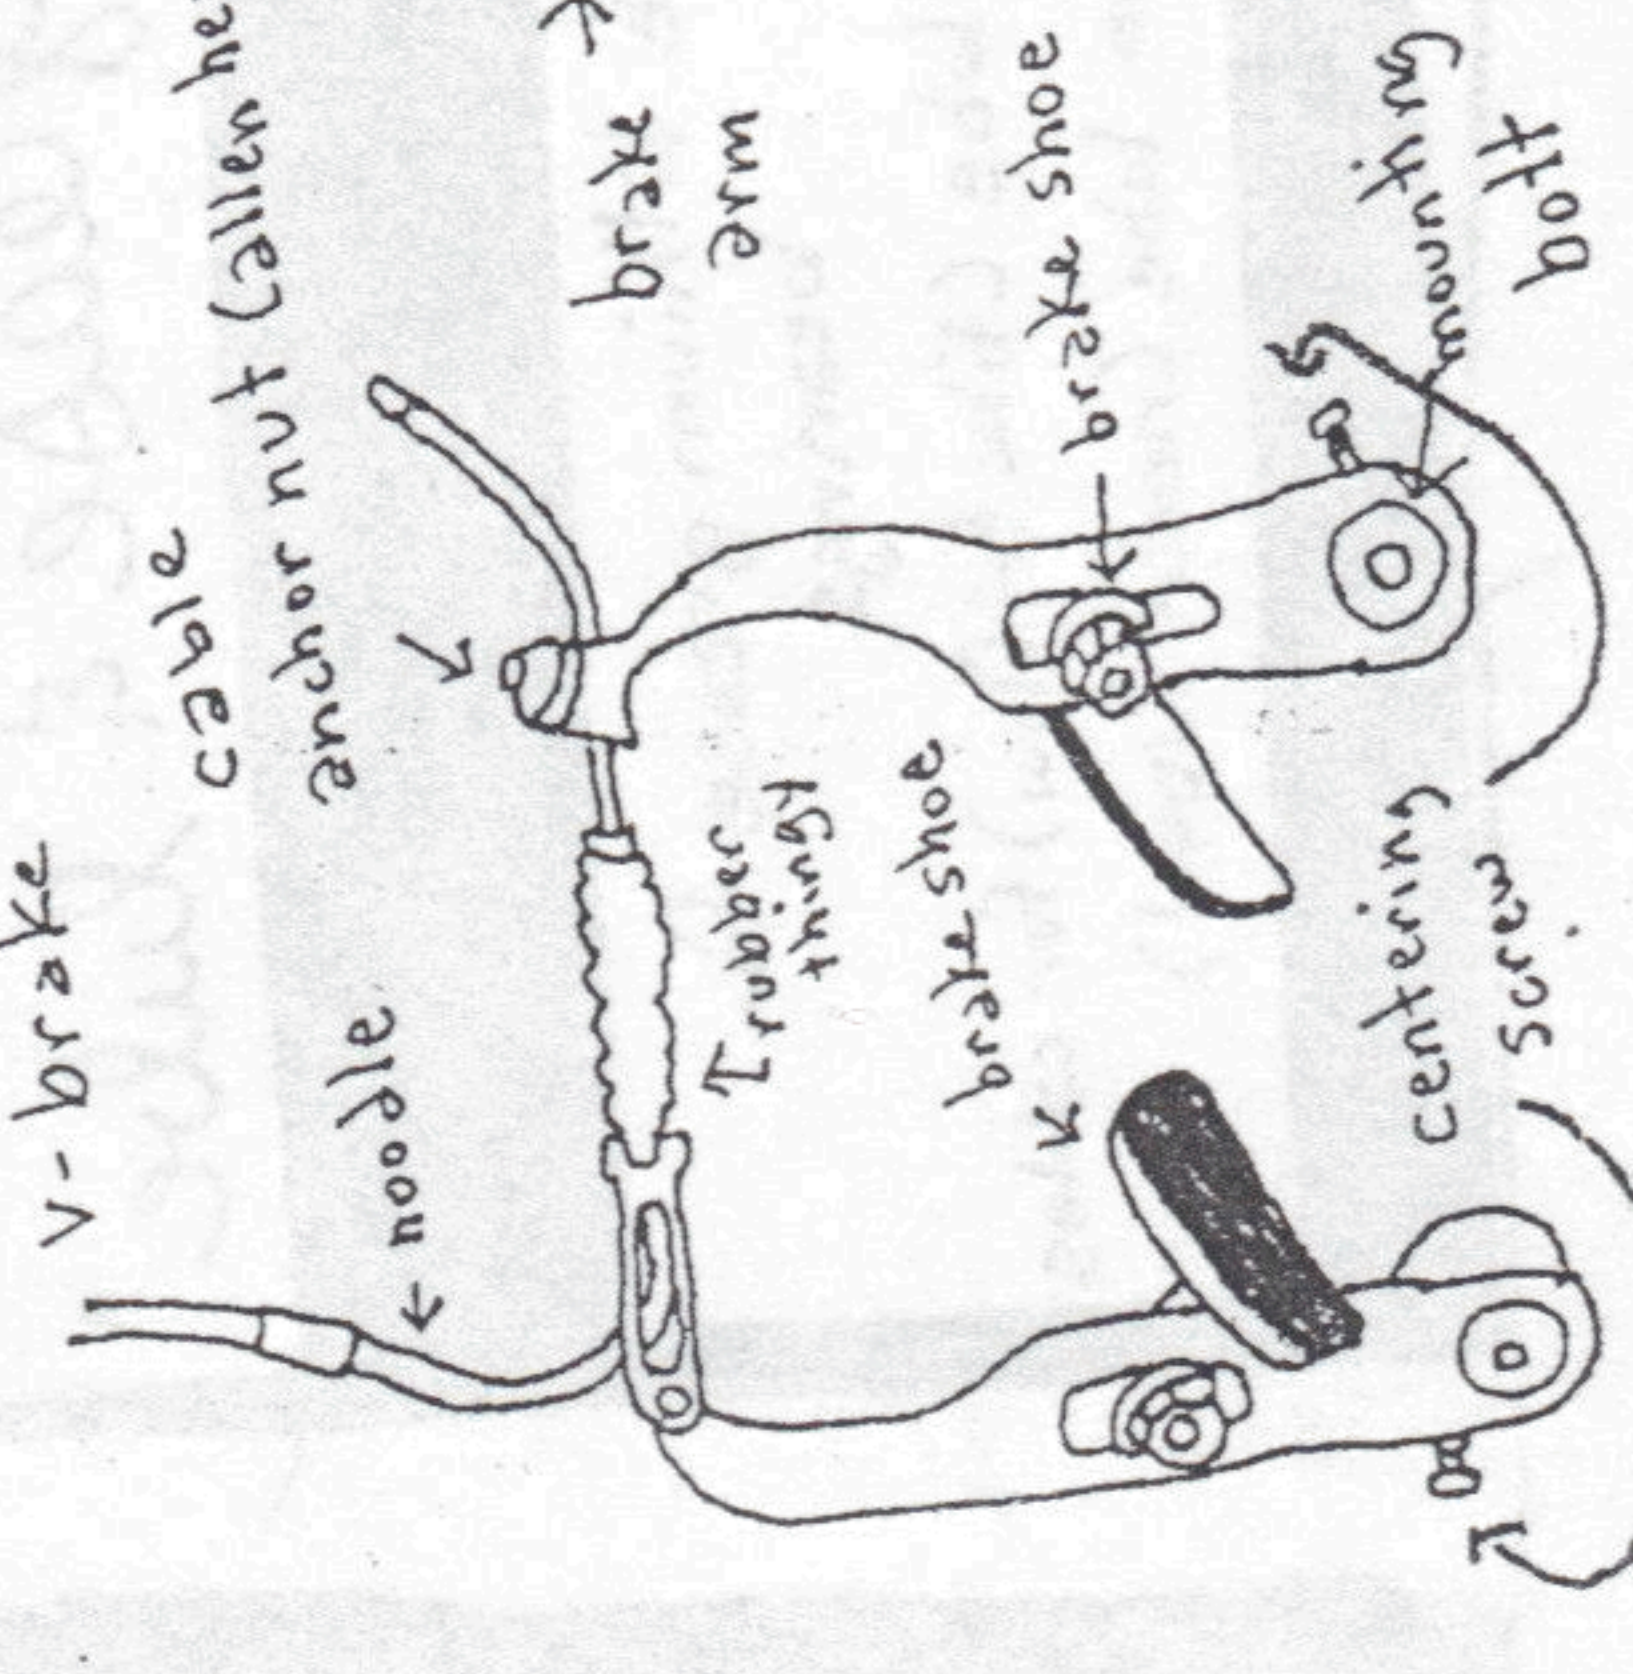 v-brake
cable
anchor nut (allen he
noodle
brake
arm
rubber
thingy
brake shoe
brake shoe
mounting
bolt
centering
screw